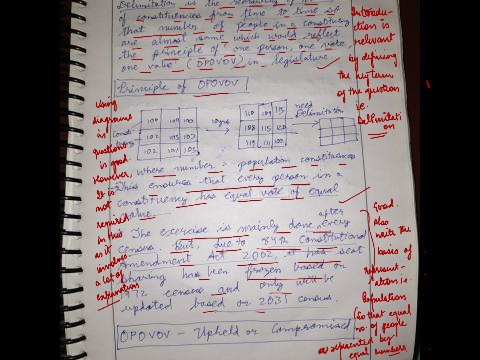 Delimitation is the
of constituencies from time to time so
that number of people in a constituency
are almost same which would reflect
the principle of "one person, one vote
one value" (OPOVOV) in legislature.
Introdu-
ction is
relevant
by defining
the key term
of the question
i.e.
Delimitati
on
Principle of OPOVOV
100 100 100
102 105 103
102 101 105
10yrs
108 115 120
need
Delimitation
Where number = population constituencies
This ensures that every person in a
constituency has equal vote of equal
value.
Using
diagrams
in
question
is good.
However,
It is
not
required
in this
as it
involves
a lot of
explanation
The exercise is mainly done after every
census. But, due to 84th Constitutional
Amendment Act 2002, it has seat
sharing has been frozen based on
1972 census and only will be
updated based on 2031 census.
Good.
Also
write the
bases of
represent-
ation i.e.
Population
(So that equal
no. of people
represented by
equal numbers
OPOVOV - Upheld or Compromised